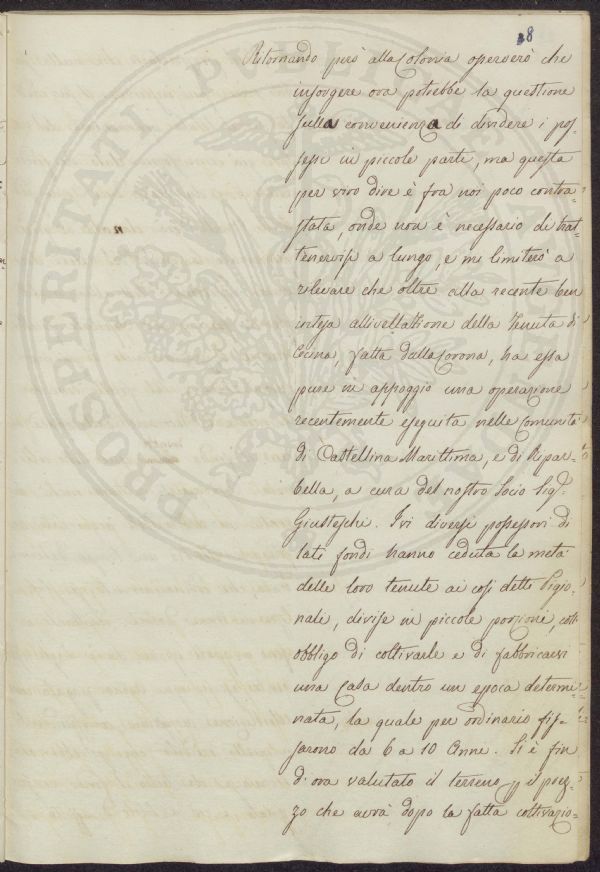 8
Ritornando però alla Colonia operserò che
insorgere ora potrebbe la questione
sulla convenienza di dividere i pos-
sessi in piccole parti, ma questa
per vivo dire è fra noi poco contra-
stata, onde non è necessario di trat-
tenervisi a lungo, e mi limiterò a
rilevare che oltre alla recente ben
intesa allivellazione della Tenuta di
Cecina, fatta dalla Corona, ha essa
pure in appoggio una operazione
recentemente eseguita nelle Comunità
di Castellina Marittima, e di Ripar-
bella, a cura del nostro Socio Sigr.
Giusteschi. Ivi diversi possessori di
lati fondi hanno ceduta la metà
delle loro tenute ai così detti Pigio-
nali, divise in piccole porzioni, coll'
obbligo di coltivarle e di fabbricarvi
una Casa dentro un epoca determi-
nata, la quale per ordinario fis-
sarono da 6 a 10 Anni. Si è fin
d'ora valutato il terreno p. il prez-
zo che avrà dopo la fatta coltivazio-
PROSPERITATI PUBLICAE